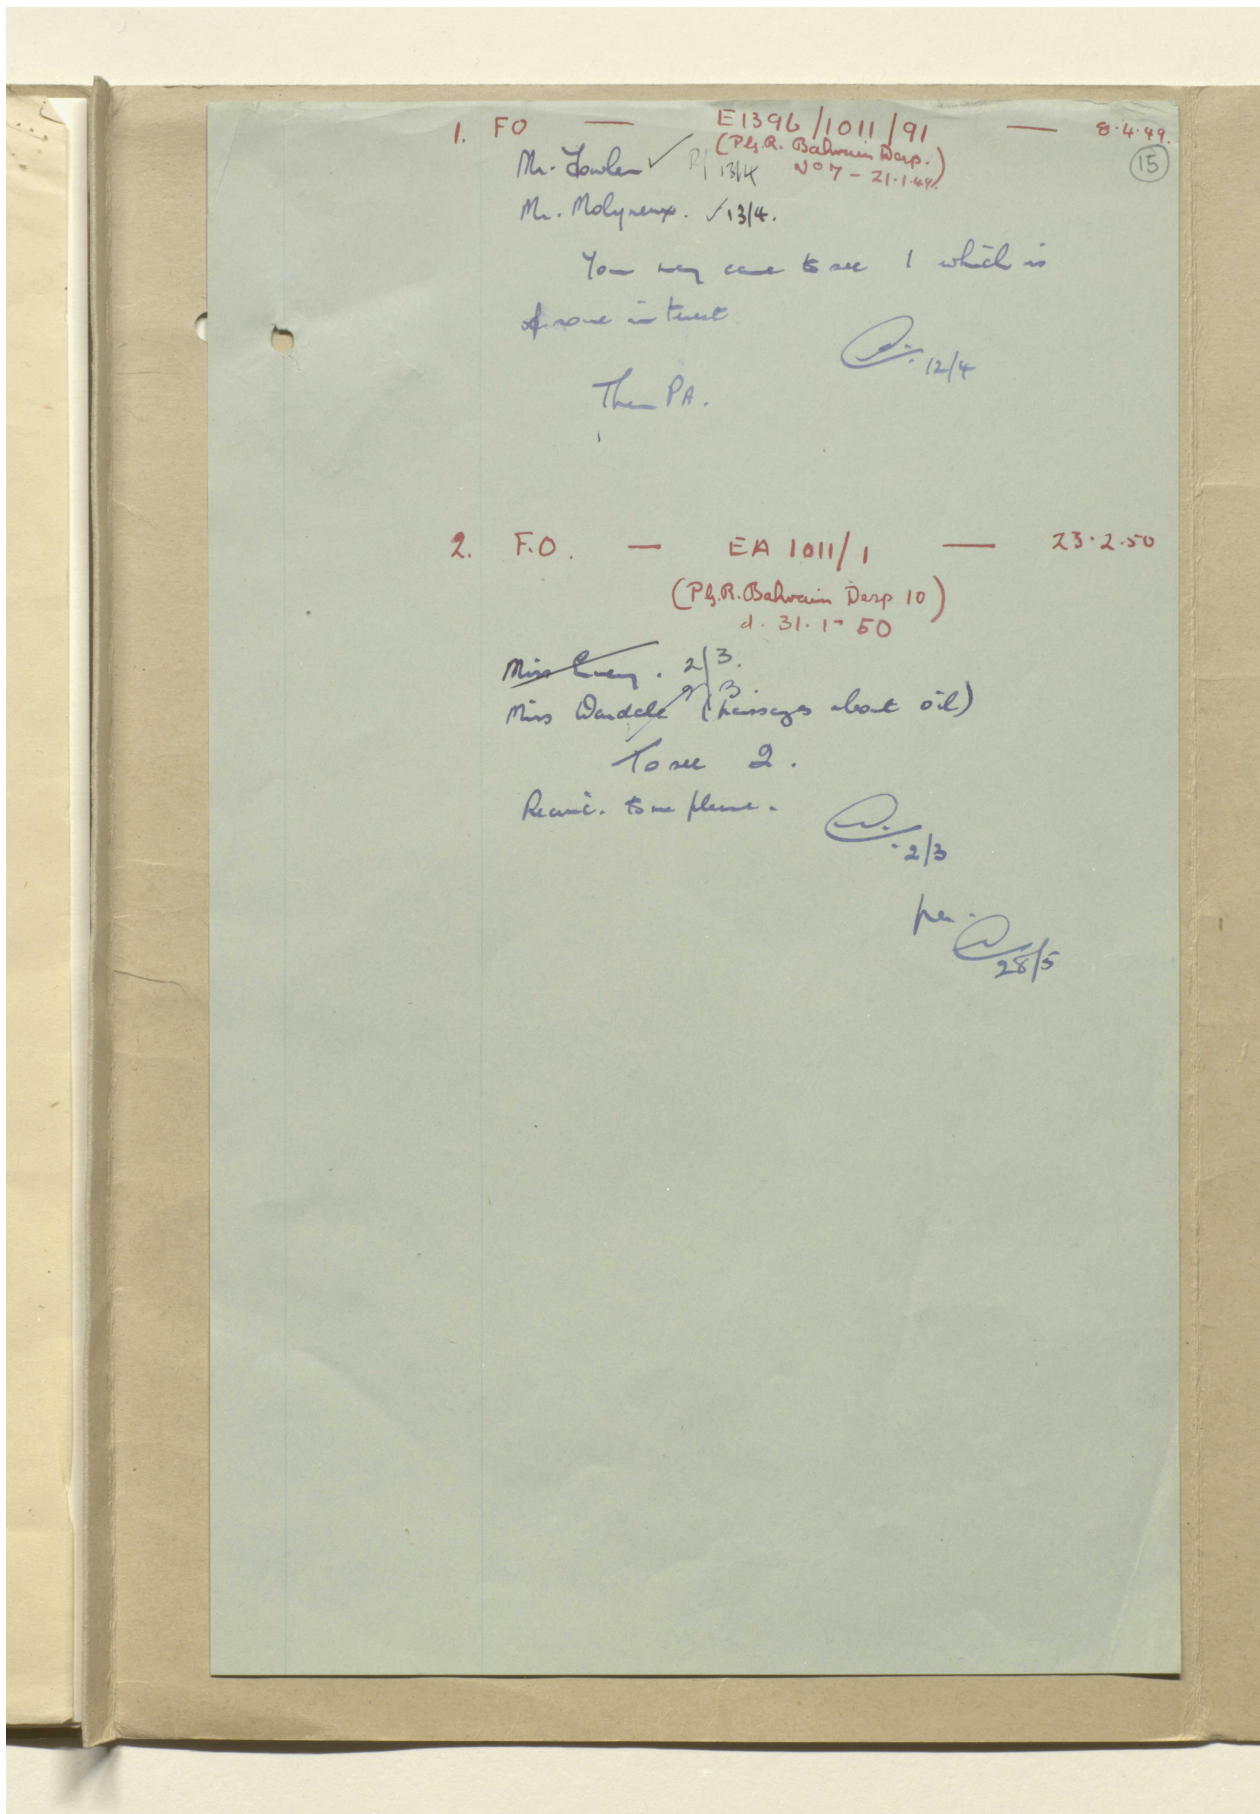 1. FO — E1396/1011/91 — 8.4.49.
(P.G.R. Bahrain Desp.)
No 7 - 21.1.49.
15
Mr. Fowler ✓ 13/4
Mr. Molyneux. ✓ 13/4.
You may care to see 1 which is
of some interest
12/4
Then PA.
2. F.O. — EA 1011/1 — 23.2.50
(P.G.R. Bahrain Desp 10)
d. 31.1-50
Miss 2/3.
Miss Wardale 2/3. (passages about oil)
To see 2.
to me please.
2/3
28/5